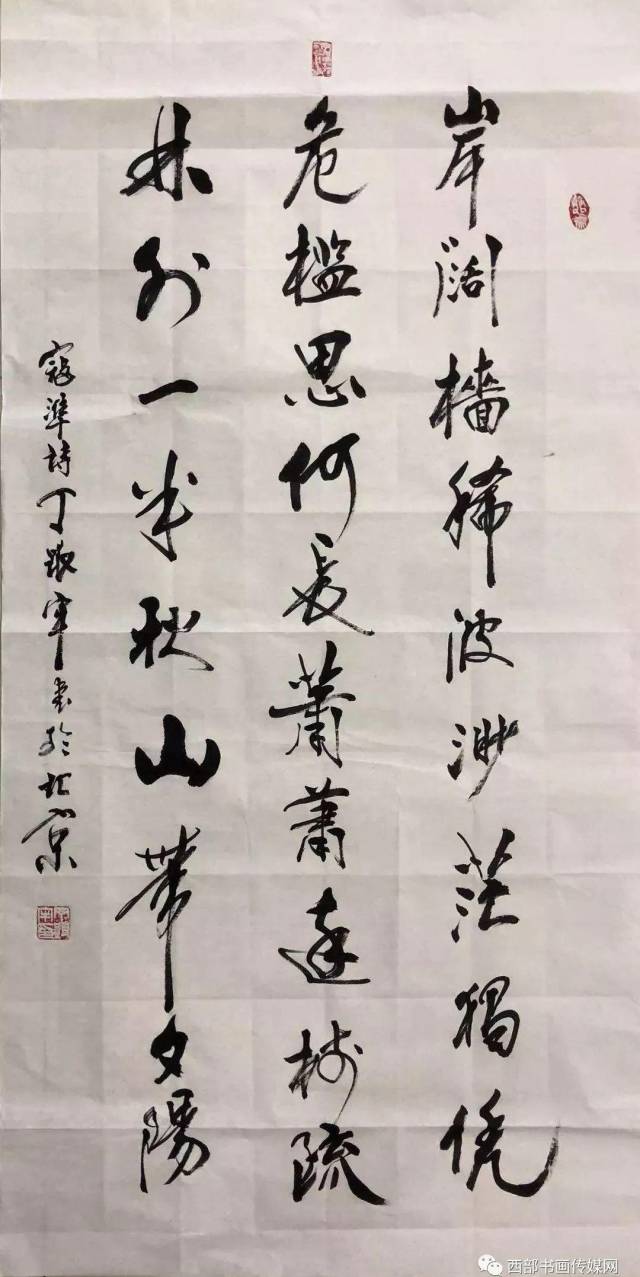 岸阔樯稀波渺茫独凭
危槛思何长萧萧远树疏
林外一半秋山带夕阳
寇準诗丁敬军书於北京
西部书画传媒网